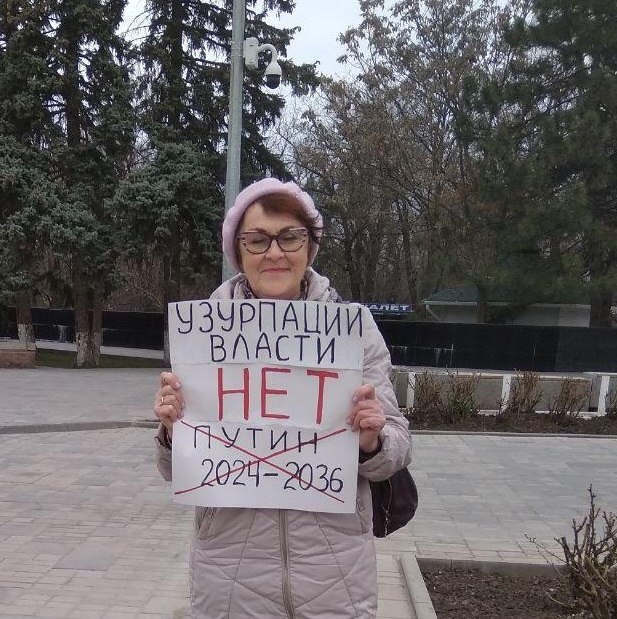 УЗУРПАЦИИ
ВЛАСТИ
НЕТ
ПУТИН
2024-2036